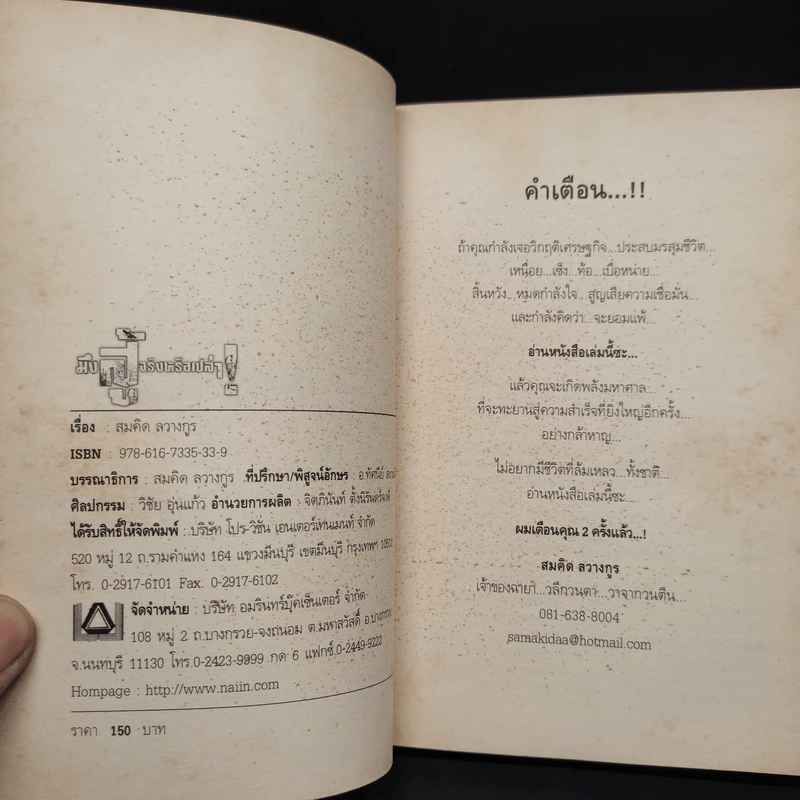 มึง
จริงหรือเปล่า!
เรื่อง : สมคิด ลวางกูร
ISBN : 978-616-7335-33-9
บรรณาธิการ : สมคิด ลวางกูร ที่ปรึกษา/พิสูจน์อักษร : อ.ทัศนีย์
ศิลปกรรม : วิชัย อุ่นแก้ว อำนวยการผลิต : จิตภินันท์ ตั้งนิรันดร์พงศ์
ได้รับสิทธิ์ให้จัดพิมพ์ : บริษัท โปร-วิชั่น เอนเตอร์เทนเมนท์ จำกัด
520 หมู่ 12 ถ.รามคำแหง 164 แขวงมีนบุรี เขตมีนบุรี กรุงเทพฯ 10510
โทร. 0-2917-6101 Fax. 0-2917-6102
จัดจำหน่าย : บริษัท อมรินทร์บุ๊คเซ็นเตอร์ จำกัด
108 หมู่ 2 ถ.บางกรวย-จงถนอม ต.มหาสวัสดิ์ อ.บางกรวย
จ.นนทบุรี 11130 โทร.0-2423-9999 กด 6 แฟกซ์.0-2449-9222
Hompage : http://www.naiin.com
ราคา 150 บาท
คำเตือน...!!
ถ้าคุณกำลังเจอวิกฤติเศรษฐกิจ...ประสบมรสุมชีวิต...
เหนื่อย...เซ็ง...ท้อ...เบื่อหน่าย...
สิ้นหวัง...หมดกำลังใจ...สูญเสียความเชื่อมั่น...
และกำลังคิดว่า...จะยอมแพ้...
อ่านหนังสือเล่มนี้ซะ...
แล้วคุณจะเกิดพลังมหาศาล...
ที่จะทะยานสู่ความสำเร็จที่ยิ่งใหญ่อีกครั้ง...
อย่างกล้าหาญ...
ไม่อยากมีชีวิตที่ล้มเหลว...ทั้งชาติ...
อ่านหนังสือเล่มนี้ซะ...
ผมเตือนคุณ 2 ครั้งแล้ว...!
สมคิด ลวางกูร
เจ้าของฉายา...วลีกวนตา...วาจากวนตีน...
081-638-8004
samakidaa@hotmail.com